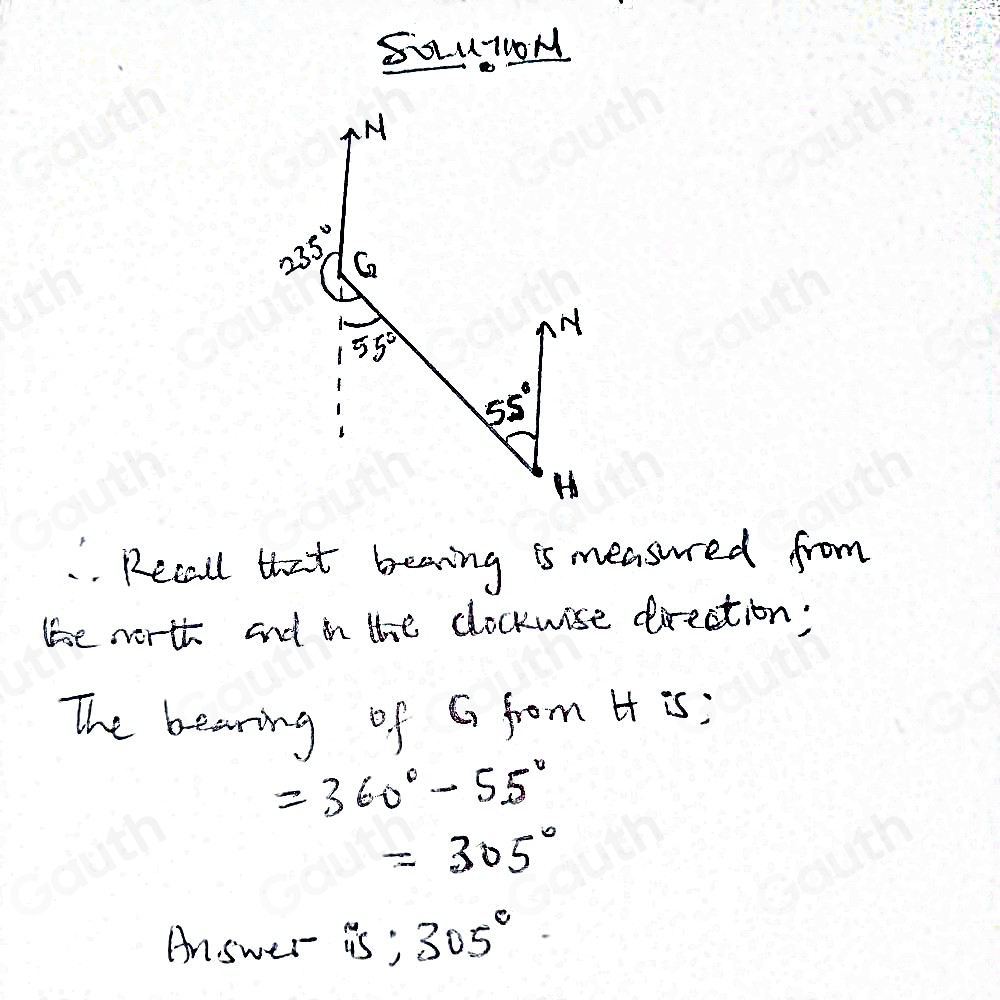 SOLUTION
N
235°
G
55°
N
55°
H
∴ Recall that bearing is measured from
the north and in the clockwise direction;
The bearing of G from H is;
= 360° - 55°
= 305°
Answer is; 305°.
Gauth